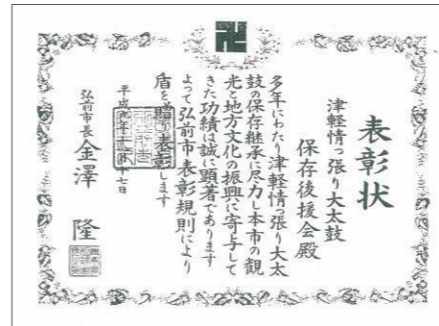 表彰状
津軽情っ張り大太鼓
保存後援会殿
多年にわたり津軽情っ張り大太
鼓の保存継承に尽力し本市の観
光と地方文化の振興に寄与して
きた功績は誠に顕著であります
よって弘前市表彰規則により
盾を贈り表彰します
平成 年 月 十七日
弘前市長 金澤 隆